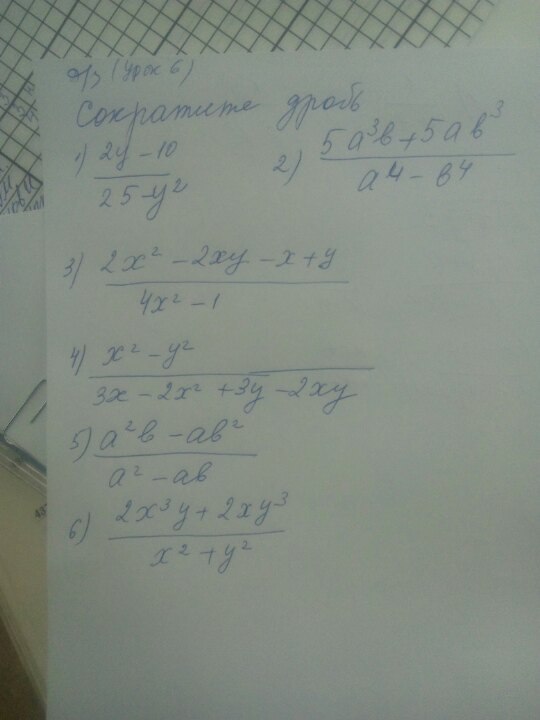 Д/з (урок 6)
Сократите дробь
1) (2y - 10)/(25 - y²) 2) (5a³b + 5ab³)/(a⁴ - b⁴)
3) (2x² - 2xy - x + y)/(4x² - 1)
4) (x² - y²)/(3x - 2x² + 3y - 2xy)
5) (a²b - ab²)/(a² - ab)
6) (2x³y + 2xy³)/(x² + y²)